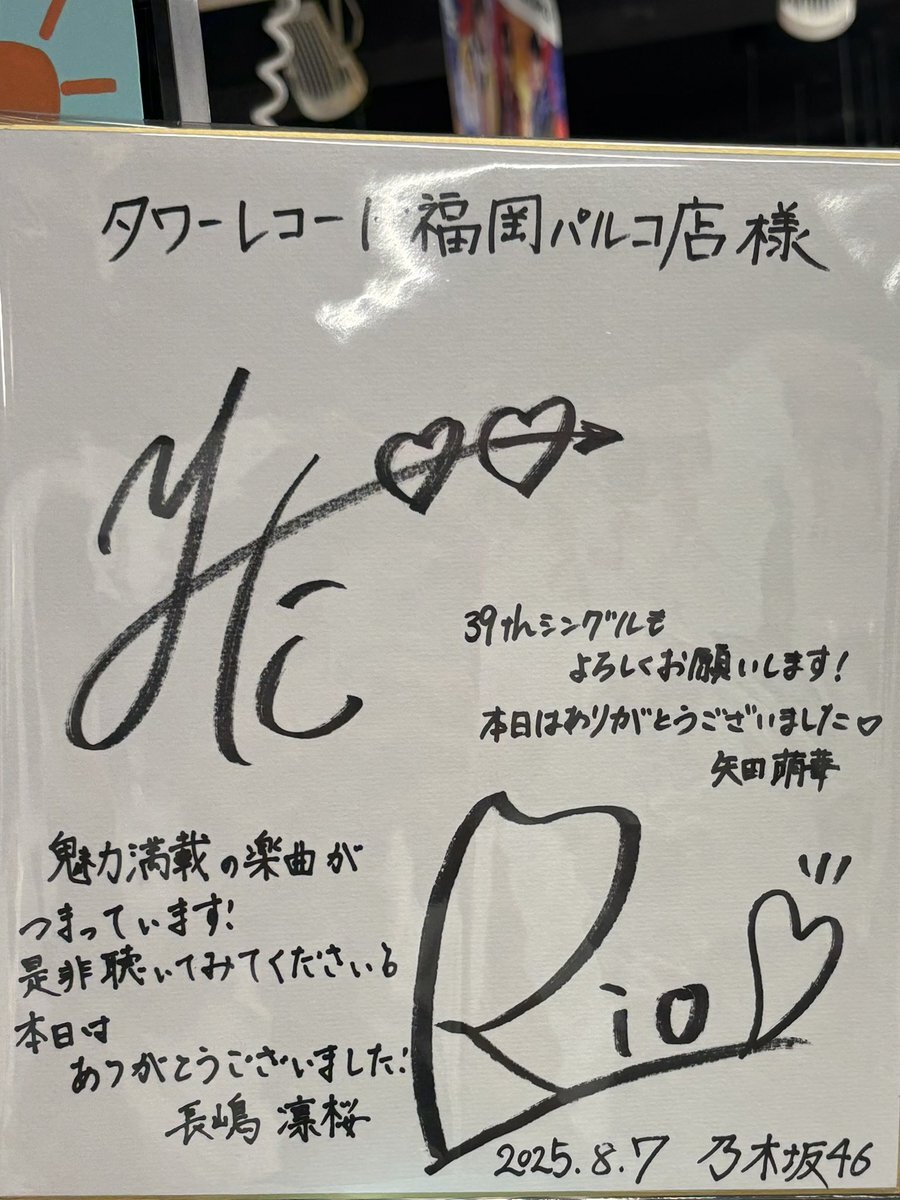 タワーレコード 福岡パルコ店 様
39thシングルも
よろしくお願いします!
本日はありがとうございました♡
矢田萌華
魅力満載の楽曲が
つまっています!
是非聴いてみてください♪
本日は
ありがとうございました!
長嶋 凛桜
Rio
2025.8.7 乃木坂46